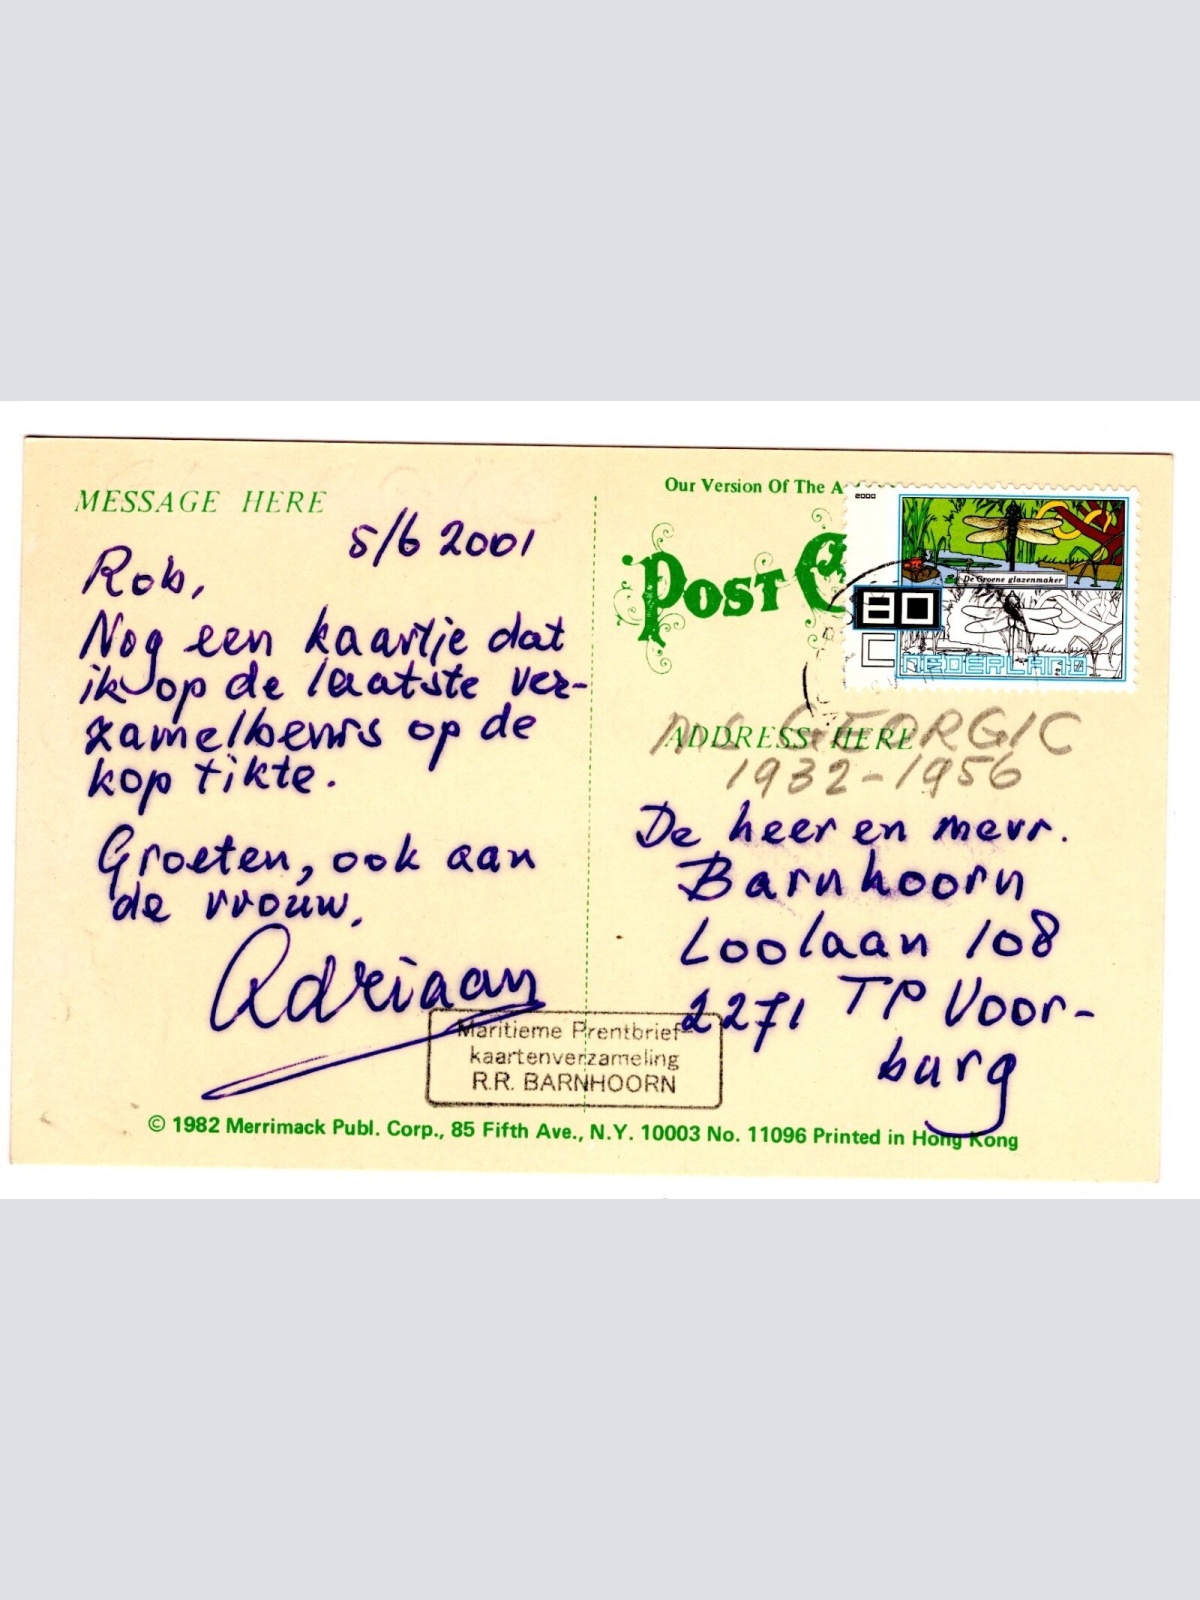 MESSAGE HERE
5/6 2001
Rob,
Nog een kaartje dat
ik op de laatste ver-
zamelbeurs op de
kop tikte.
Groeten, ook aan
de vrouw.
Adriaan
Our Version Of The
POST C
2000
De Groene glazenmaker
80
C NEDERLAND
ADDRESS HERE
GEORGIC
1932-1956
De heer en mevr.
Barnhoorn
Loolaan 108
2271 TP Voor-
burg
Maritieme Prentbrief-
kaartenverzameling
R.R. BARNHOORN
© 1982 Merrimack Publ. Corp., 85 Fifth Ave., N.Y. 10003 No. 11096 Printed in Hong Kong